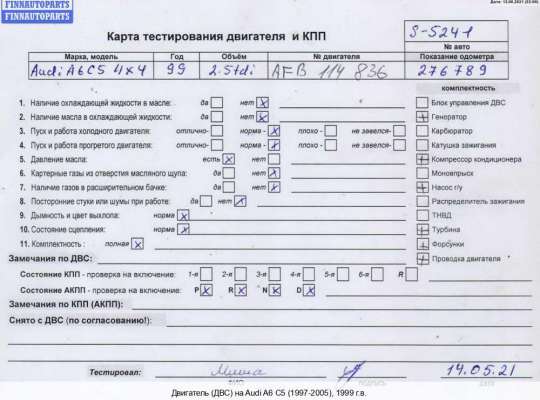 Дата: 15.06.2021 (23:05)
FINNAUTOPARTS
FINNAUTOPARTS
Карта тестирования двигателя и КПП
S-5241
№ авто
Марка, модель Год Объём № двигателя Показание одометра
Audi A6C5 4x4 99 2.5tdi AFB 114 836 276789
комплектность
1. Наличие охлаждающей жидкости в масле: да нет x Блок управления ДВС
2. Наличие масла в охлаждающей жидкости: да нет x Генератор
3. Пуск и работа холодного двигателя: отлично- норма - x плохо - не завелся- Карбюратор
4. Пуск и работа прогретого двигателя: отлично- норма - x плохо - не завелся- Катушка зажигания
5. Давление масла: есть x нет Компрессор кондиционера
6. Картерные газы из отверстия масляного щупа: да нет x Моновпрыск
7. Наличие газов в расширительном бачке: да нет x Насос г/у
8. Посторонние стуки или шумы при работе: да нет x Распределитель зажигания
9. Дымность и цвет выхлопа: норма x ТНВД
10. Состояние сцепления: норма x Турбина
11. Комплектность : полная x Форсунки
Замечания по ДВС: Проводка двигателя
Состояние КПП - проверка на включение: 1-я 2-я 3-я 4-я 5-я 6-я R
Состояние АКПП - проверка на включение: P x R x N x D x
Замечания по КПП (АКПП):
Снято с ДВС (по согласованию!):
Тестировал: 14.05.21
ФИО ПОДПИСЬ ДАТА
Двигатель (ДВС) на Audi A6 C5 (1997-2005), 1999 г.в.